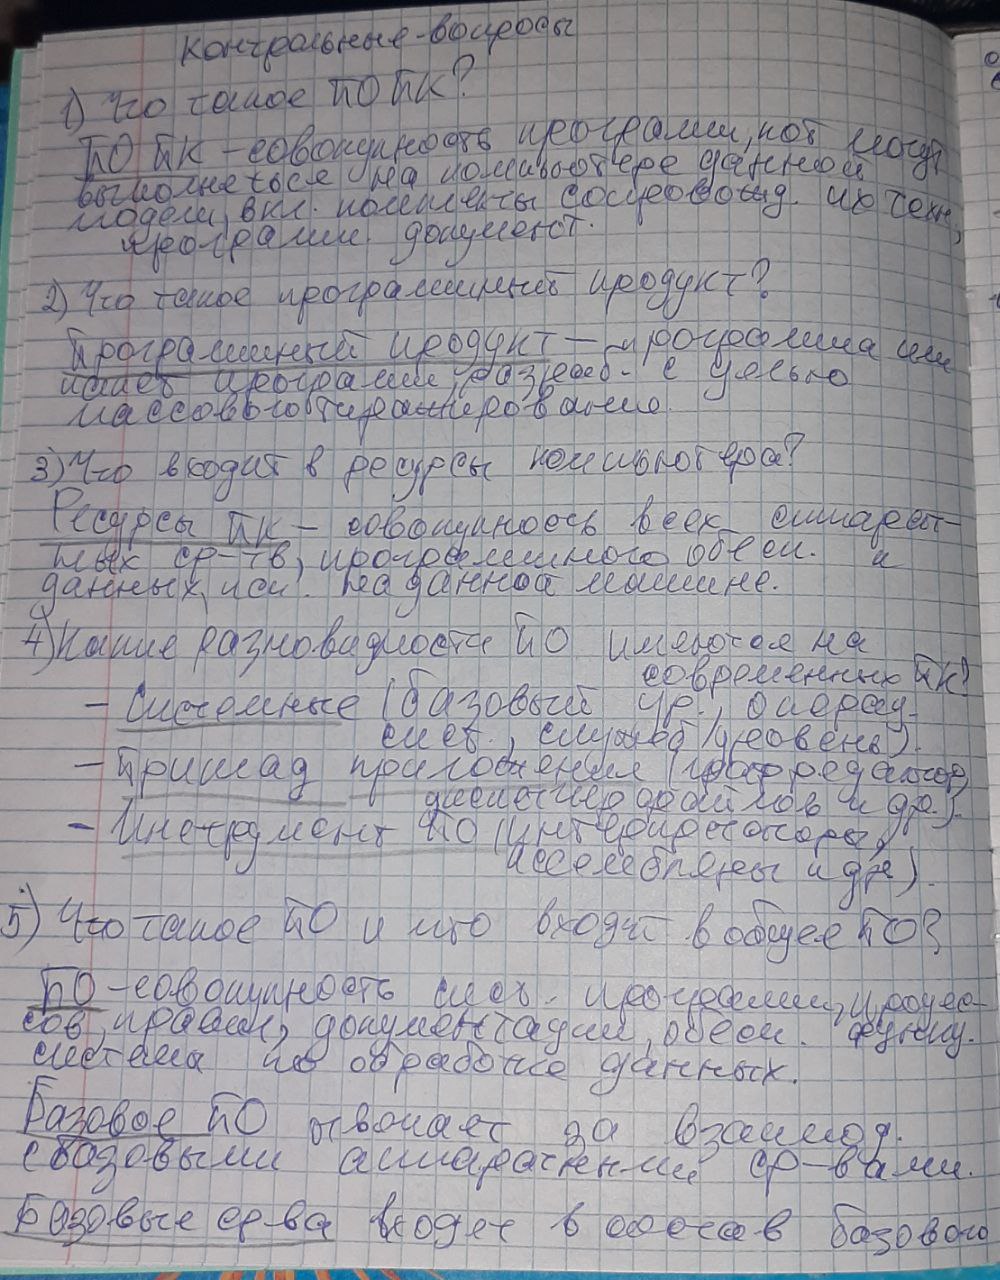 Контрольные вопросы
1) Что такое ПО ПК?
ПО ПК – совокупность программ, кот могут
выполнеться на компьютере данной
модели, вкл. комплекты сопровожд. их техн,
программ. документ.
2) Что такое программный продукт?
Программный продукт – программа или
пакет программ, разраб. с целью
массового тиражирования.
3) Что входит в ресурсы компьютера?
Ресурсы ПК – совокупность всех аппарат-
ных ср-тв, программного обесп. и
данных, исп. на данной машине.
4) Какие разновидности ПО имеются на
современных ПК?
– Системные (базовый ур., операц.
сист., служеб уровень).
– Приклад приложения (граф редактор,
диспетчер файлов и др.).
– Инструмент ПО (интерпретаторы,
ассемблеры и др.).
5) Что такое ПО и что входит в общее ПО?
ПО – совокупность сист. программ, процес-
сов, правил, документации, обесп. функц.
система по обработке данных.
Базовое ПО отвечает за взаимод.
с базовыми аппаратными ср-вами.
Базовые ср-ва входят в состав базового